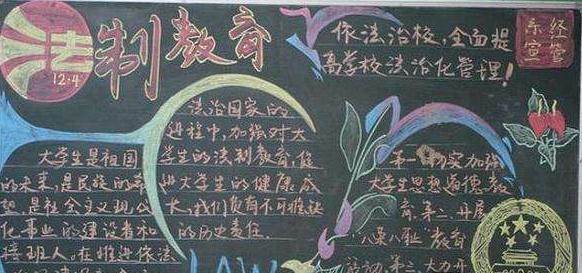 法制教育
12.4
依法治校,全面提
高学校法治化管理!
经管
系宣
法治国家的
进程中,加强对大
学生的法制教育,促
进大学生的健康成
长,我们负有不可推卸
的历史责任
大学生是祖国
的未来,是民族的希
望 是社会主义现代
化事业的建设者和
接班人,在推进依法
第一 切实加强
大学生思想道德教
育,第二、开展
“八荣八耻”教育
活动,第三、大力开
LAW